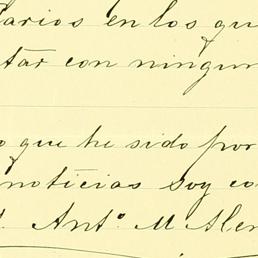 arios en los qu
tar con ningun
o que he sido por
noticias soy co
Anto. M Alen